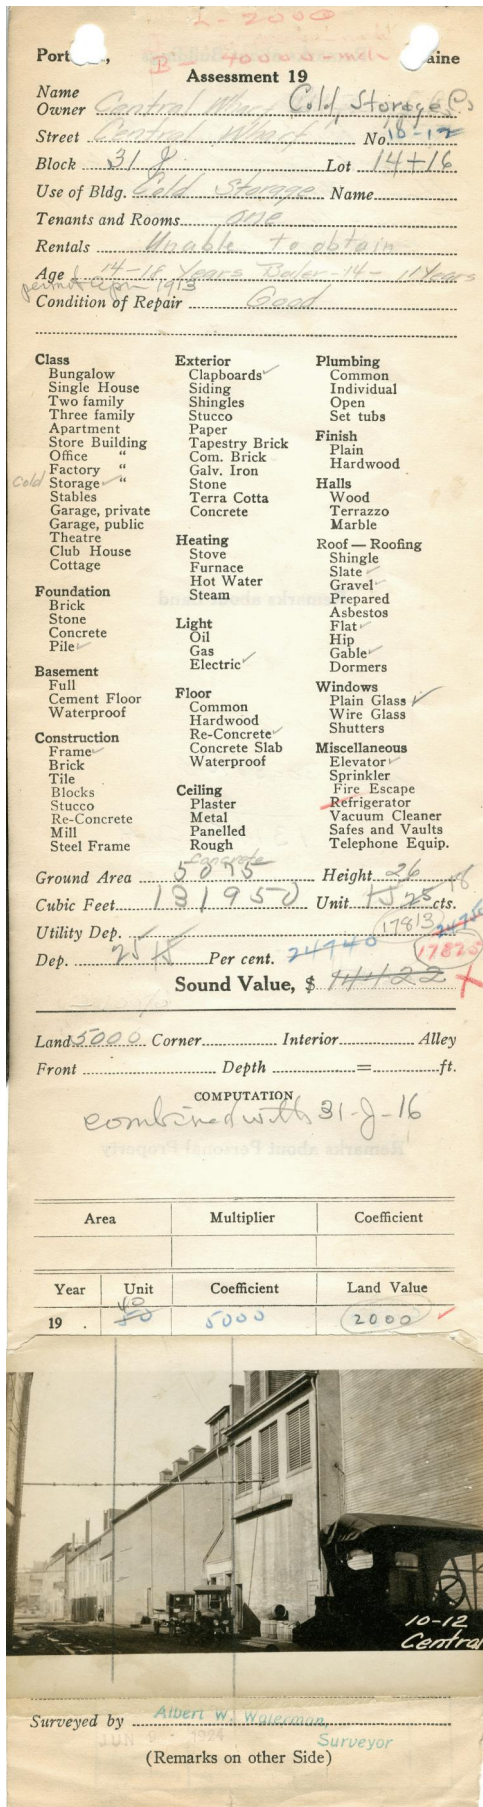 L-2000
B-40000-mch
Port , aine
Assessment 19
Name
Owner Central Wharf Cold Storage Co
Street Central Wharf No 10-12
Block 31 J Lot 14+16
Use of Bldg. Cold Storage Name
Tenants and Rooms one
Rentals Unable to obtain
Age 14-18 Years Boler-14-11 Years
permit 1913
Condition of Repair Good
Class
Bungalow
Single House
Two family
Three family
Apartment
Store Building
Office "
Factory "
Cold Storage ✓ "
Stables
Garage, private
Garage, public
Theatre
Club House
Cottage
Foundation
Brick
Stone
Concrete
Pile ✓
Basement
Full
Cement Floor
Waterproof
Construction
Frame ✓
Brick
Tile
Blocks
Stucco
Re-Concrete
Mill
Steel Frame
Exterior
Clapboards ✓
Siding
Shingles
Stucco
Paper
Tapestry Brick
Com. Brick
Galv. Iron
Stone
Terra Cotta
Concrete
Heating
Stove
Furnace
Hot Water
Steam
Light
Oil
Gas
Electric ✓
Floor
Common
Hardwood
Re-Concrete ✓
Concrete Slab
Waterproof
Ceiling
Plaster
Metal
Panelled
Rough
concrete
Plumbing
Common
Individual
Open
Set tubs
Finish
Plain
Hardwood
Halls
Wood
Terrazzo
Marble
Roof — Roofing
Shingle
Slate ✓
Gravel ✓
Prepared
Asbestos
Flat ✓
Hip
Gable ✓
Dormers
Windows
Plain Glass ✓
Wire Glass
Shutters
Miscellaneous
Elevator ✓
Sprinkler
Fire Escape
Refrigerator
Vacuum Cleaner
Safes and Vaults
Telephone Equip.
Ground Area 5075 Height 26
Cubic Feet 131950 Unit 15 25 18 cts.
Utility Dep. 17813 24750
Dep. 25 15 Per cent. 24740 17825
Sound Value, $ 14422
Land 5000 Corner Interior Alley
Front Depth = ft.
COMPUTATION
combined with 31-J-16
Area Multiplier Coefficient
Year Unit Coefficient Land Value
40
19 . 50 5000 2000
10-12
Central
Surveyed by Albert W. Waterman,
Surveyor
JUN 1924
(Remarks on other Side)